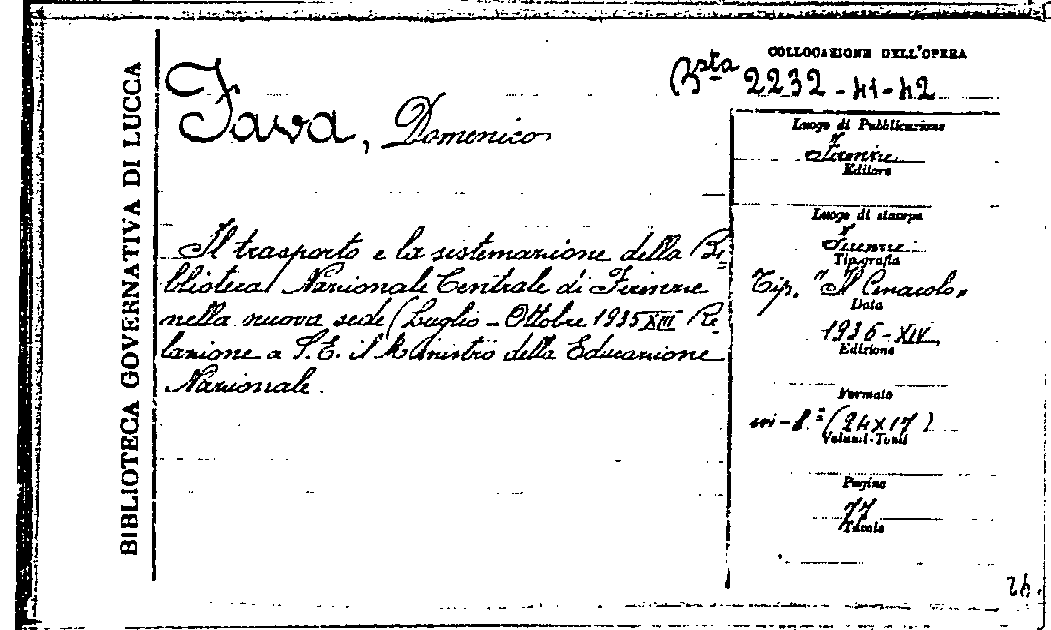 BIBLIOTECA GOVERNATIVA DI LUCCA
Fava, Domenico
Il trasporto e la sistemazione della Bi=
blioteca Nazionale Centrale di Firenze
nella nuova sede (Luglio - Ottobre 1935 XIII Re=
lazione a S. E. il Ministro della Educazione
Nazionale.
COLLOCAZIONE DELL'OPERA
Bsta 2232 - 41-42
Luogo di Pubblicazione
Firenze
Editore
Luogo di stampa
Firenze
Tipografia
Tip. "Il Cenacolo"
Data
1936 - XIV
Edizione
Formato
in-8.° (24X17)
Volumi-Tomi
Pagine
77
Tavole